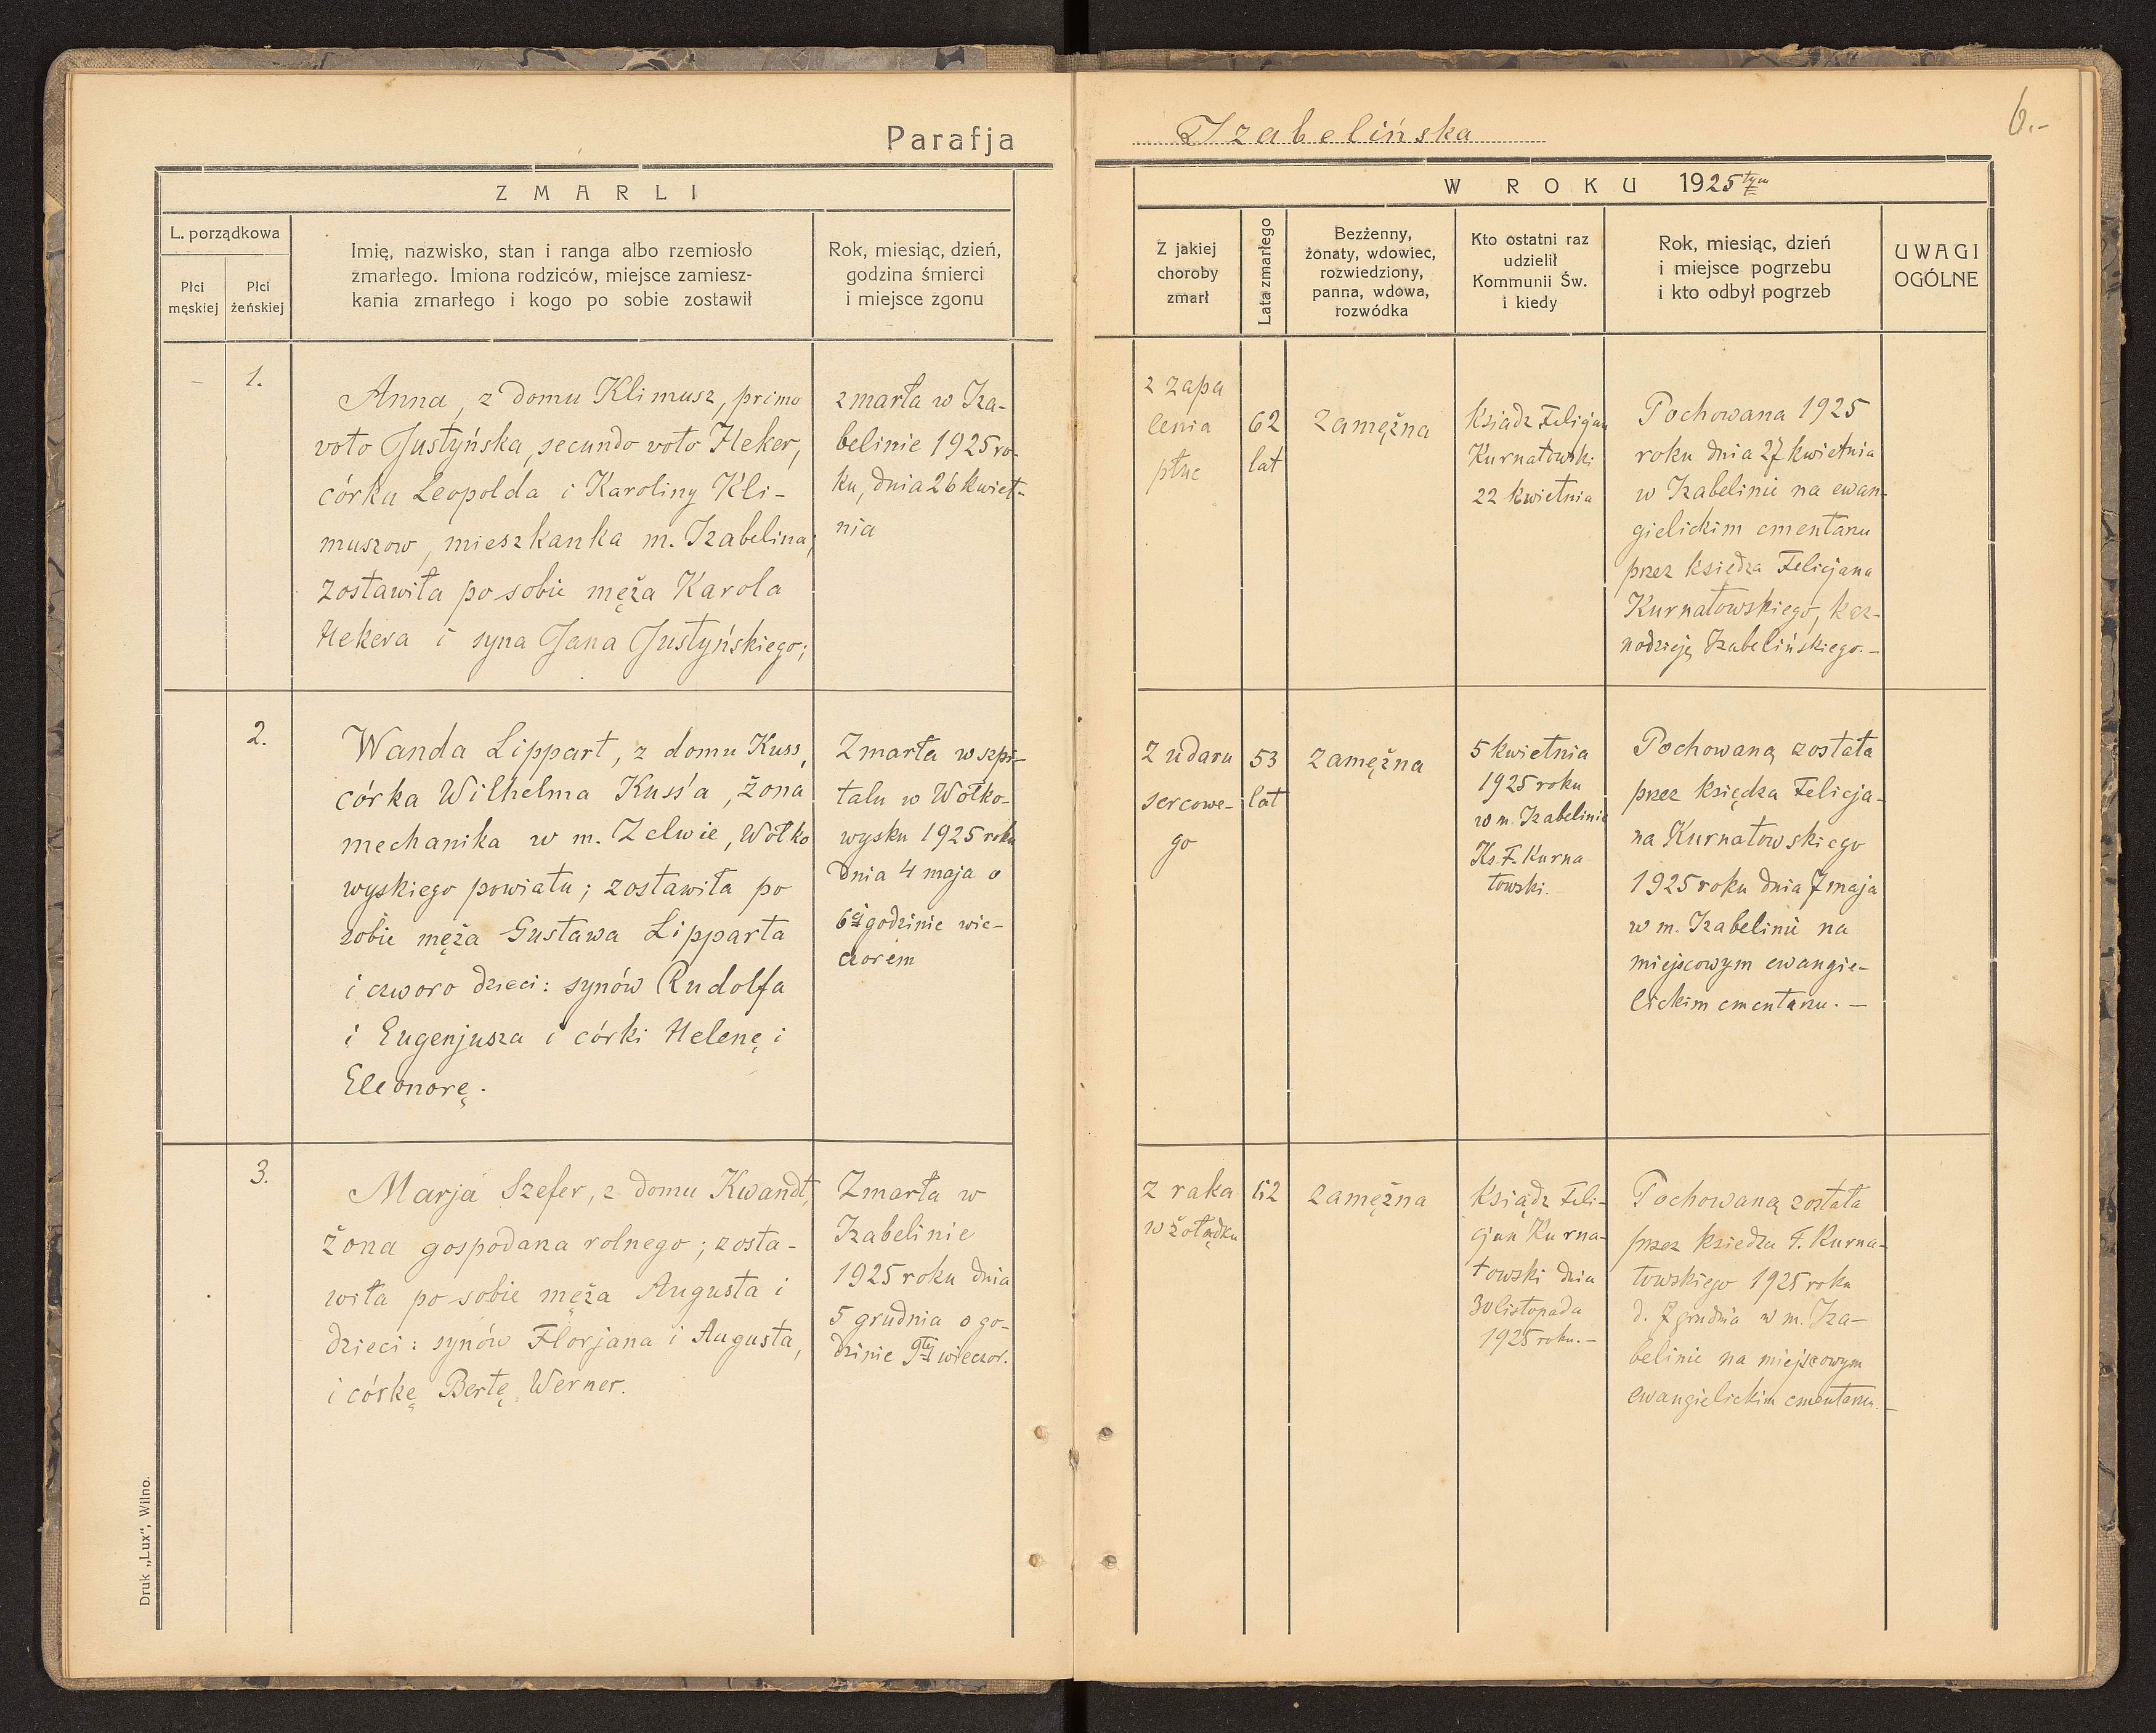 Parafja
Izabelińska
6.-
ZMARLI
W ROKU 1925 tym
L. porządkowa
Płci męskiej
Płci żeńskiej
Imię, nazwisko, stan i ranga albo rzemiosło
zmarłego. Imiona rodziców, miejsce zamiesz-
kania zmarłego i kogo po sobie zostawił
Rok, miesiąc, dzień,
godzina śmierci
i miejsce zgonu
Z jakiej
choroby
zmarł
Lata zmarłego
Bezżenny,
żonaty, wdowiec,
rozwiedziony,
panna, wdowa,
rozwódka
Kto ostatni raz
udzielił
Kommunii Św.
i kiedy
Rok, miesiąc, dzień
i miejsce pogrzebu
i kto odbył pogrzeb
UWAGI
OGÓLNE
–
1.
Anna, z domu Klimusz, primo
voto Justyńska, secundo voto Heker,
córka Leopolda i Karoliny Kli-
muszow, mieszkanka m. Izabelina;
zostawiła po sobie męża Karola
Hekera i syna Jana Justyńskiego;
zmarła w Iza-
belinie 1925 ro-
ku, dnia 26 kwiet-
nia
z zapa
lenia
płuc
62
lat
zamężna
Ksiądz Felicjan
Kurnatowski
22 kwietnia
Pochowana 1925
roku dnia 27 kwietnia
w Izabelinie na ewan-
gielickim cmentarzu
przez księdza Felicjana
Kurnatowskiego, kaz-
nodzieję Izabelińskiego.–
2.
Wanda Lippart, z domu Kuss,
córka Wilhelma Kuss'a, żona
mechanika w m. Zelwie, Wołko
wyskiego powiatu; zostawiła po
sobie męża Gustawa Lipparta
i czworo dzieci: synów Rudolfa
i Eugenjusza i córki Helenę i
Eleonorę.
Zmarła w szpi-
talu w Wołko-
wysku 1925 roku
dnia 4 maja o
6ej godzinie wie-
czorem
Z udaru
sercowe-
go
53
lat
zamężna
5 kwietnia
1925 roku
w m. Izabelinie
Ks. F. Kurna
towski.
Pochowaną została
przez księdza Felicja-
na Kurnatowskiego
1925 roku dnia 7 maja
w m. Izabelinie na
miejscowym ewangie-
lickim cmentarzu. –
3.
Marja Szefer, z domu Kwandt,
żona gospodarza rolnego; zosta-
wiła po sobie męża Augusta i
dzieci: synów Florjana i Augusta,
i córkę Bertę Werner.
Zmarła w
Izabelinie
1925 roku dnia
5 grudnia o go-
dzinie 9tej wieczor.
z raka
w żołądku
62
zamężna
Ksiądz Feli-
cjan Kurna-
towski dnia
30 listopada
1925 roku.–
Pochowaną została
przez księdza F. Kurna-
towskiego 1925 roku
d. 7 grudnia w m. Iza-
belinie na miejscowym
ewangielickim cmentarzu.–
Druk „Lux", Wilno.